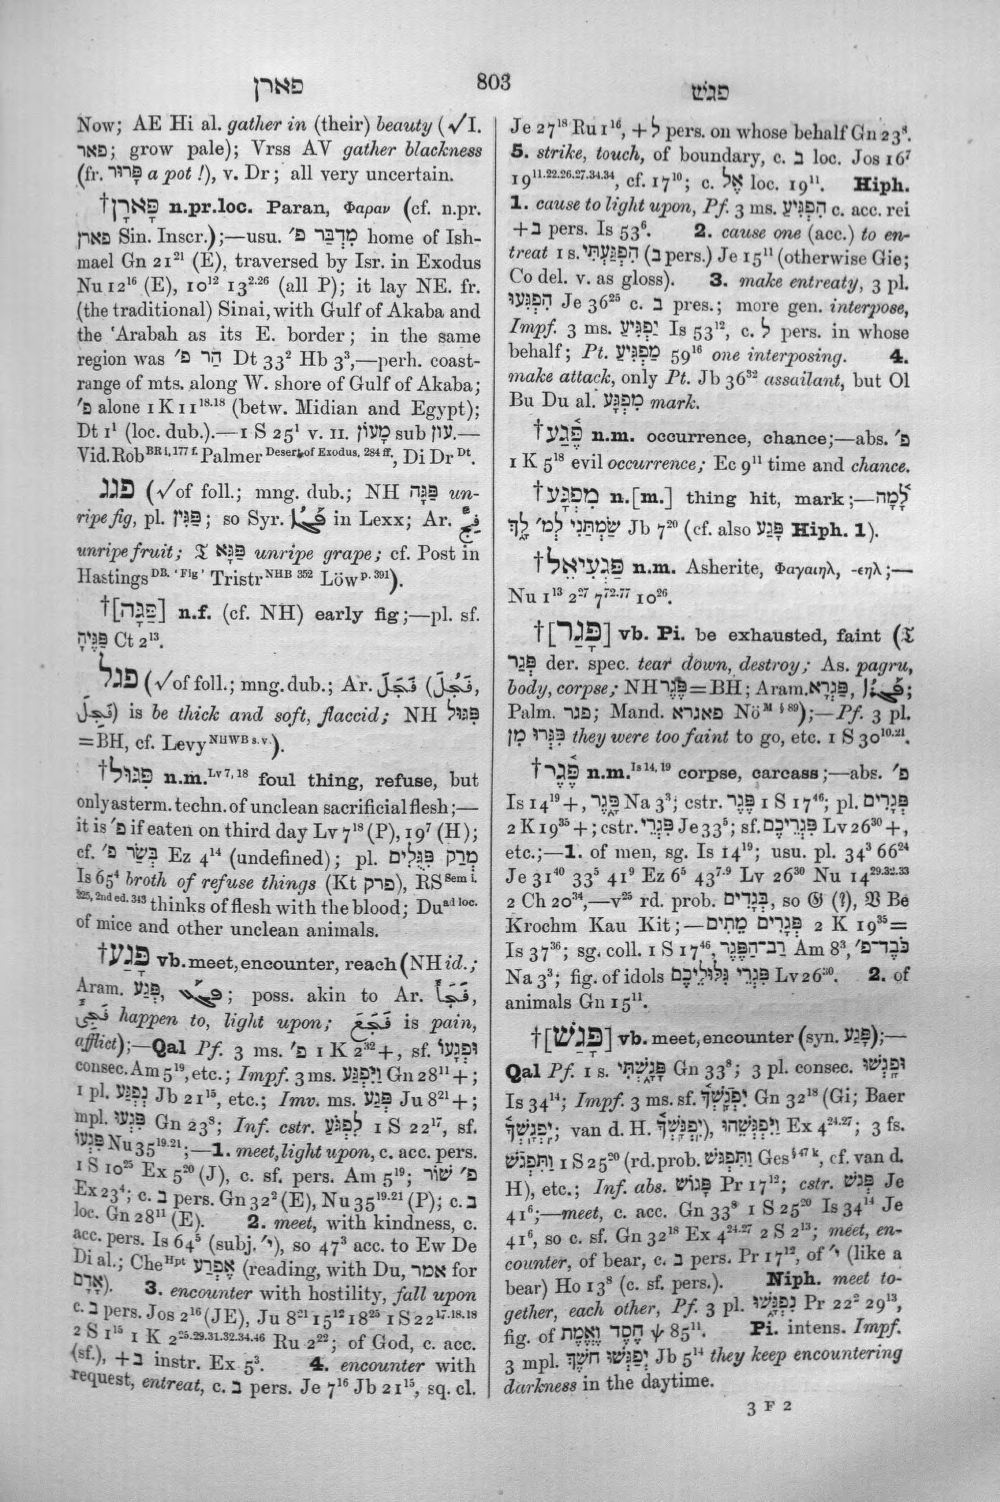 פארן
803
פגש
Now; AE Hi al. gather in (their) beauty (√I.
פאר; grow pale); Vrss AV gather blackness
(fr. פָּרוּר a pot !), v. Dr; all very uncertain.
†פָּארָן n.pr.loc. Paran, Φαραν (cf. n.pr.
פארן Sin. Inscr.);—usu. מִדְבַּר פ׳ home of Ish-
mael Gn 21²¹ (E), traversed by Isr. in Exodus
Nu 12¹⁶ (E), 10¹² 13²·²⁶ (all P); it lay NE. fr.
(the traditional) Sinai, with Gulf of Akaba and
the ʿArabah as its E. border; in the same
region was הַר פ׳ Dt 33² Hb 3³,—perh. coast-
range of mts. along W. shore of Gulf of Akaba;
פ׳ alone 1 K 11¹⁸·¹⁸ (betw. Midian and Egypt);
Dt 1¹ (loc. dub.).—1 S 25¹ v. II. מָעוֹן sub עון.—
Vid. Rob BR i, 177 f. Palmer Desert of Exodus, 284 ff., Di Dr Dt.
פגג (√of foll.; mng. dub.; NH פַּגָּה un-
ripe fig, pl. פַּגִּין; so Syr. in Lexx; Ar. فِجّ
unripe fruit; 𝔗 פַּגָּא unripe grape; cf. Post in
Hastings DB. ‘Fig’ Tristr NHB 352 Löw p. 391).
†[פַּגָּה] n.f. (cf. NH) early fig;—pl. sf.
פַּגֶּיהָ Ct 2¹³.
פגל (√of foll.; mng. dub.; Ar. فَجِلَ (فَجُلَ,
فَجَلَ) is be thick and soft, flaccid; NH פִּגּוּל
=BH, cf. Levy NHWB s.v.).
†פִּגּוּל n.m. Lv 7, 18 foul thing, refuse, but
only as term. techn. of unclean sacrificial flesh;—
it is פ׳ if eaten on third day Lv 7¹⁸ (P), 19⁷ (H);
cf. בְּשַׂר פ׳ Ez 4¹⁴ (undefined); pl. מְרַק פִּגֻּלִים
Is 65⁴ broth of refuse things (Kt פרק), RS Sem i.
325, 2nd ed. 343 thinks of flesh with the blood; Du ad loc.
of mice and other unclean animals.
†פָּגַע vb. meet, encounter, reach (NH id.;
Aram. פְּגַע, ; poss. akin to Ar. فَجَأَ,
فَجِئَ happen to, light upon; فَجَعَ is pain,
afflict);—Qal Pf. 3 ms. פ׳ 1 K 2³²+, sf. וּפְגָעוֹ
consec. Am 5¹⁹, etc.; Impf. 3 ms. וַיִּפְגַּע Gn 28¹¹+;
1 pl. נִפְגַּע Jb 21¹⁵, etc.; Imv. ms. פְּגַע Ju 8²¹+;
mpl. פִּגְעוּ Gn 23⁸; Inf. cstr. לִפְגֹּעַ 1 S 22¹⁷, sf.
פִּגְעוֹ Nu 35¹⁹·²¹;—1. meet, light upon, c. acc. pers.
1 S 10²⁵ Ex 5²⁰ (J), c. sf. pers. Am 5¹⁹; פ׳ שׁוֹר
Ex 23⁴; c. ב pers. Gn 32² (E), Nu 35¹⁹·²¹ (P); c. ב
loc. Gn 28¹¹ (E). 2. meet, with kindness, c.
acc. pers. Is 64⁵ (subj. י׳), so 47³ acc. to Ew De
Di al.; Che Hpt אֶפְרַע (reading, with Du, אמר for
אָדָם). 3. encounter with hostility, fall upon
c. ב pers. Jos 2¹⁶ (JE), Ju 8²¹ 15¹² 18²⁵ 1 S 22¹⁷·¹⁸·¹⁸
2 S 1¹⁵ 1 K 2²⁵·²⁹·³¹·³²·³⁴·⁴⁶ Ru 2²²; of God, c. acc.
(sf.), + ב instr. Ex 5³. 4. encounter with
request, entreat, c. ב pers. Je 7¹⁶ Jb 21¹⁵, sq. cl.
Je 27¹⁸ Ru 1¹⁶, + ל pers. on whose behalf Gn 23⁸.
5. strike, touch, of boundary, c. ב loc. Jos 16⁷
19¹¹·²²·²⁶·²⁷·³⁴·³⁴, cf. 17¹⁰; c. אֶל loc. 19¹¹. Hiph.
1. cause to light upon, Pf. 3 ms. הִפְגִּיעַ c. acc. rei
+ ב pers. Is 53⁶. 2. cause one (acc.) to en-
treat 1 s. הִפְגַּעְתִּי (ב pers.) Je 15¹¹ (otherwise Gie;
Co del. v. as gloss). 3. make entreaty, 3 pl.
הִפְגִּעוּ Je 36²⁵ c. ב pres.; more gen. interpose,
Impf. 3 ms. יַפְגִּיעַ Is 53¹², c. ל pers. in whose
behalf; Pt. מַפְגִּיעַ 59¹⁶ one interposing. 4.
make attack, only Pt. Jb 36³² assailant, but Ol
Bu Du al. מִפְגָּע mark.
†פֶּגַע n.m. occurrence, chance;—abs. פ׳
1 K 5¹⁸ evil occurrence; Ec 9¹¹ time and chance.
†מִפְגָּע n.[m.] thing hit, mark;—לָמָה
שַׂמְתַּנִי לְמ׳ לָךְ Jb 7²⁰ (cf. also פָּגַע Hiph. 1).
†פַּגְעִיאֵל n.m. Asherite, Φαγαιηλ, -εηλ;—
Nu 1¹³ 2²⁷ 7⁷²·⁷⁷ 10²⁶.
†[פָּגַר] vb. Pi. be exhausted, faint (𝔗
פְּגַר der. spec. tear down, destroy; As. pagru,
body, corpse; NH פֶּגֶר=BH; Aram. פַּגְרָא, ;
Palm. פגר; Mand. פאגרא Nö M § 89);—Pf. 3 pl.
פִּגְּרוּ מִן they were too faint to go, etc. 1 S 30¹⁰·²¹.
†פֶּגֶר n.m. Is 14, 19 corpse, carcass;—abs. פ׳
Is 14¹⁹+, פָּגֶר Na 3³; cstr. פֶּגֶר 1 S 17⁴⁶; pl. פְּגָרִים
2 K 19³⁵+; cstr. פִּגְרֵי Je 33⁵; sf. פִּגְרֵיכֶם Lv 26³⁰+,
etc.;—1. of men, sg. Is 14¹⁹; usu. pl. 34³ 66²⁴
Je 31⁴⁰ 33⁵ 41⁹ Ez 6⁵ 43⁷·⁹ Lv 26³⁰ Nu 14²⁹·³²·³³
2 Ch 20²⁴,—v²⁵ rd. prob. בְּגָדִים, so 𝔊 (?), 𝔙 Be
Krochm Kau Kit;—פְּגָרִים מֵתִים 2 K 19³⁵=
Is 37³⁶; sg. coll. 1 S 17⁴⁶, רַב־הַפֶּגֶר Am 8³, כֹּבֶד־פ׳
Na 3³; fig. of idols פִּגְרֵי גִּלּוּלֵיכֶם Lv 26³⁰. 2. of
animals Gn 15¹¹.
†[פָּגַשׁ] vb. meet, encounter (syn. פָּגַע);—
Qal Pf. 1 s. פָּגַשְׁתִּי Gn 33⁸; 3 pl. consec. וּפָגְשׁוּ
Is 34¹⁴; Impf. 3 ms. sf. יִפְגָּשְׁךָ Gn 32¹⁸ (Gi; Baer
יִפְגָשְׁךָ; van d. H. יִפְגָּשְׁךָ), וַיִּפְגְּשֵׁהוּ Ex 4²⁴·²⁷; 3 fs.
וַתִּפְגֹּשׁ 1 S 25²⁰ (rd. prob. וַתִּפְגּוֹשׁ Ges § 47 k, cf. van d.
H), etc.; Inf. abs. פָּגוֹשׁ Pr 17¹²; cstr. פְּגֹשׁ Je
41⁶;—meet, c. acc. Gn 33⁸ 1 S 25²⁰ Is 34¹⁴ Je
41⁶, so c. sf. Gn 32¹⁸ Ex 4²⁴·²⁷ 2 S 2¹³; meet, en-
counter, of bear, c. ב pers. Pr 17¹², of י׳ (like a
bear) Ho 13⁸ (c. sf. pers.). Niph. meet to-
gether, each other, Pf. 3 pl. נִפְגָּשׁוּ Pr 22² 29¹³,
fig. of חֶסֶד וֶאֱמֶת ψ 85¹¹. Pi. intens. Impf.
3 mpl. יְפַגְּשׁוּ חשֶׁךְ Jb 5¹⁴ they keep encountering
darkness in the daytime.
3 F 2